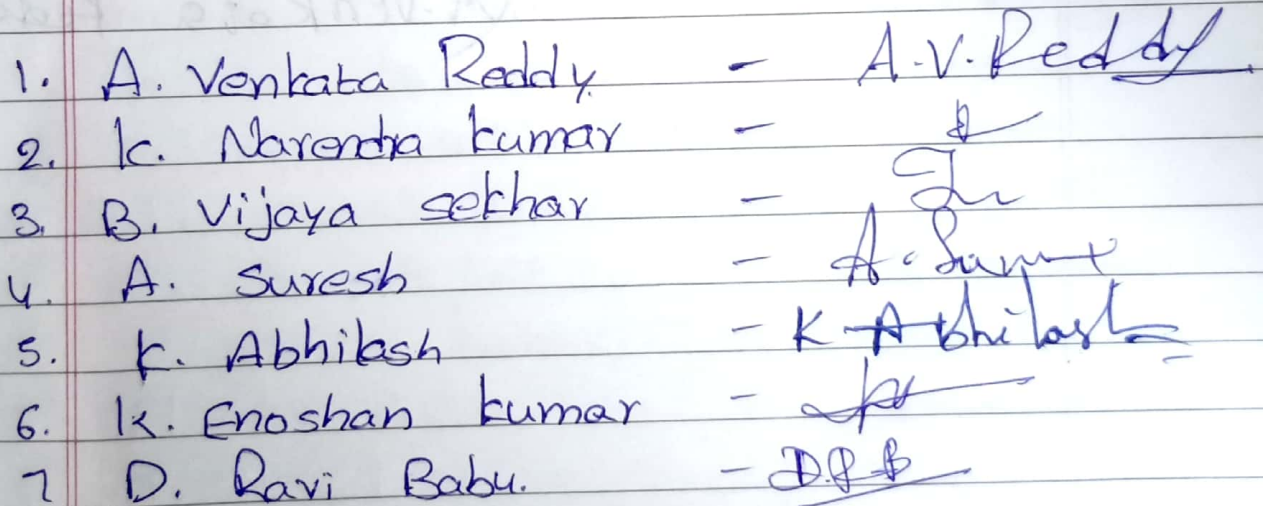 1. A. Venkata Reddy. - A.V. Reddy
2. K. Narendra kumar -
3. B. Vijaya sekhar -
4. A. Suresh - A.
5. K. Abhilash - K Abhilash
6. K. Enoshan kumar -
7 D. Ravi Babu. - D.R.B